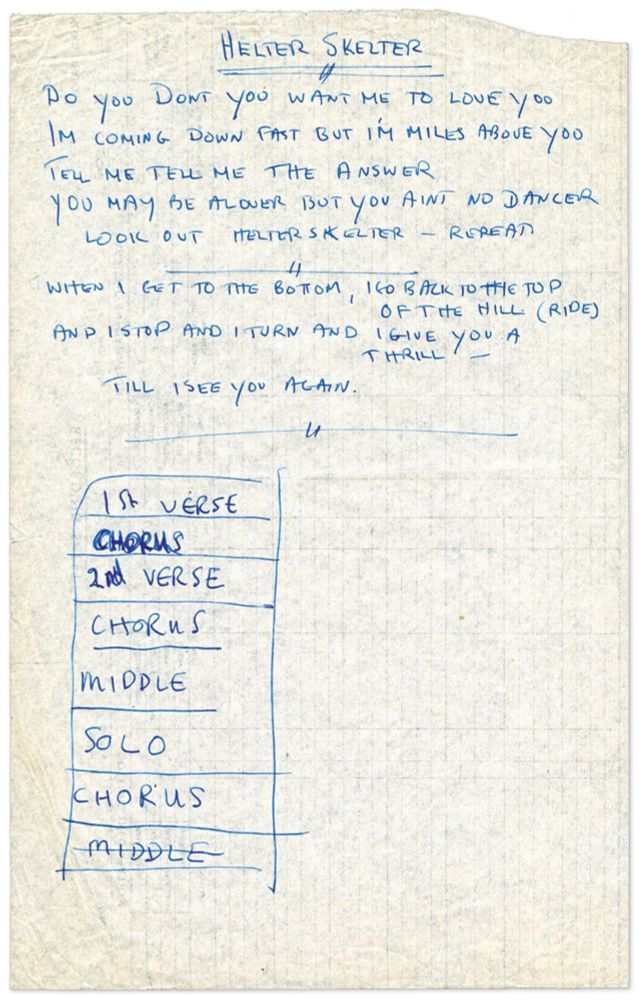 HELTER SKELTER
DO YOU DONT YOU WANT ME TO LOVE YOO
IM COMING DOWN FAST BUT I'M MILES ABOVE YOO
TELL ME TELL ME THE ANSWER
YOU MAY BE ALOVER BUT YOU AINT NO DANCER
LOOK OUT HELTER SKELTER — REPEAT
WHEN I GET TO THE BOTTOM, I GO BACK TO THE TOP
OF THE HILL (RIDE)
AND I STOP AND I TURN AND I GIVE YOU A
THRILL —
TILL I SEE YOU AGAIN.
1ST VERSE
CHORUS
2nd VERSE
CHORUS
MIDDLE
SOLO
CHORUS
MIDDLE